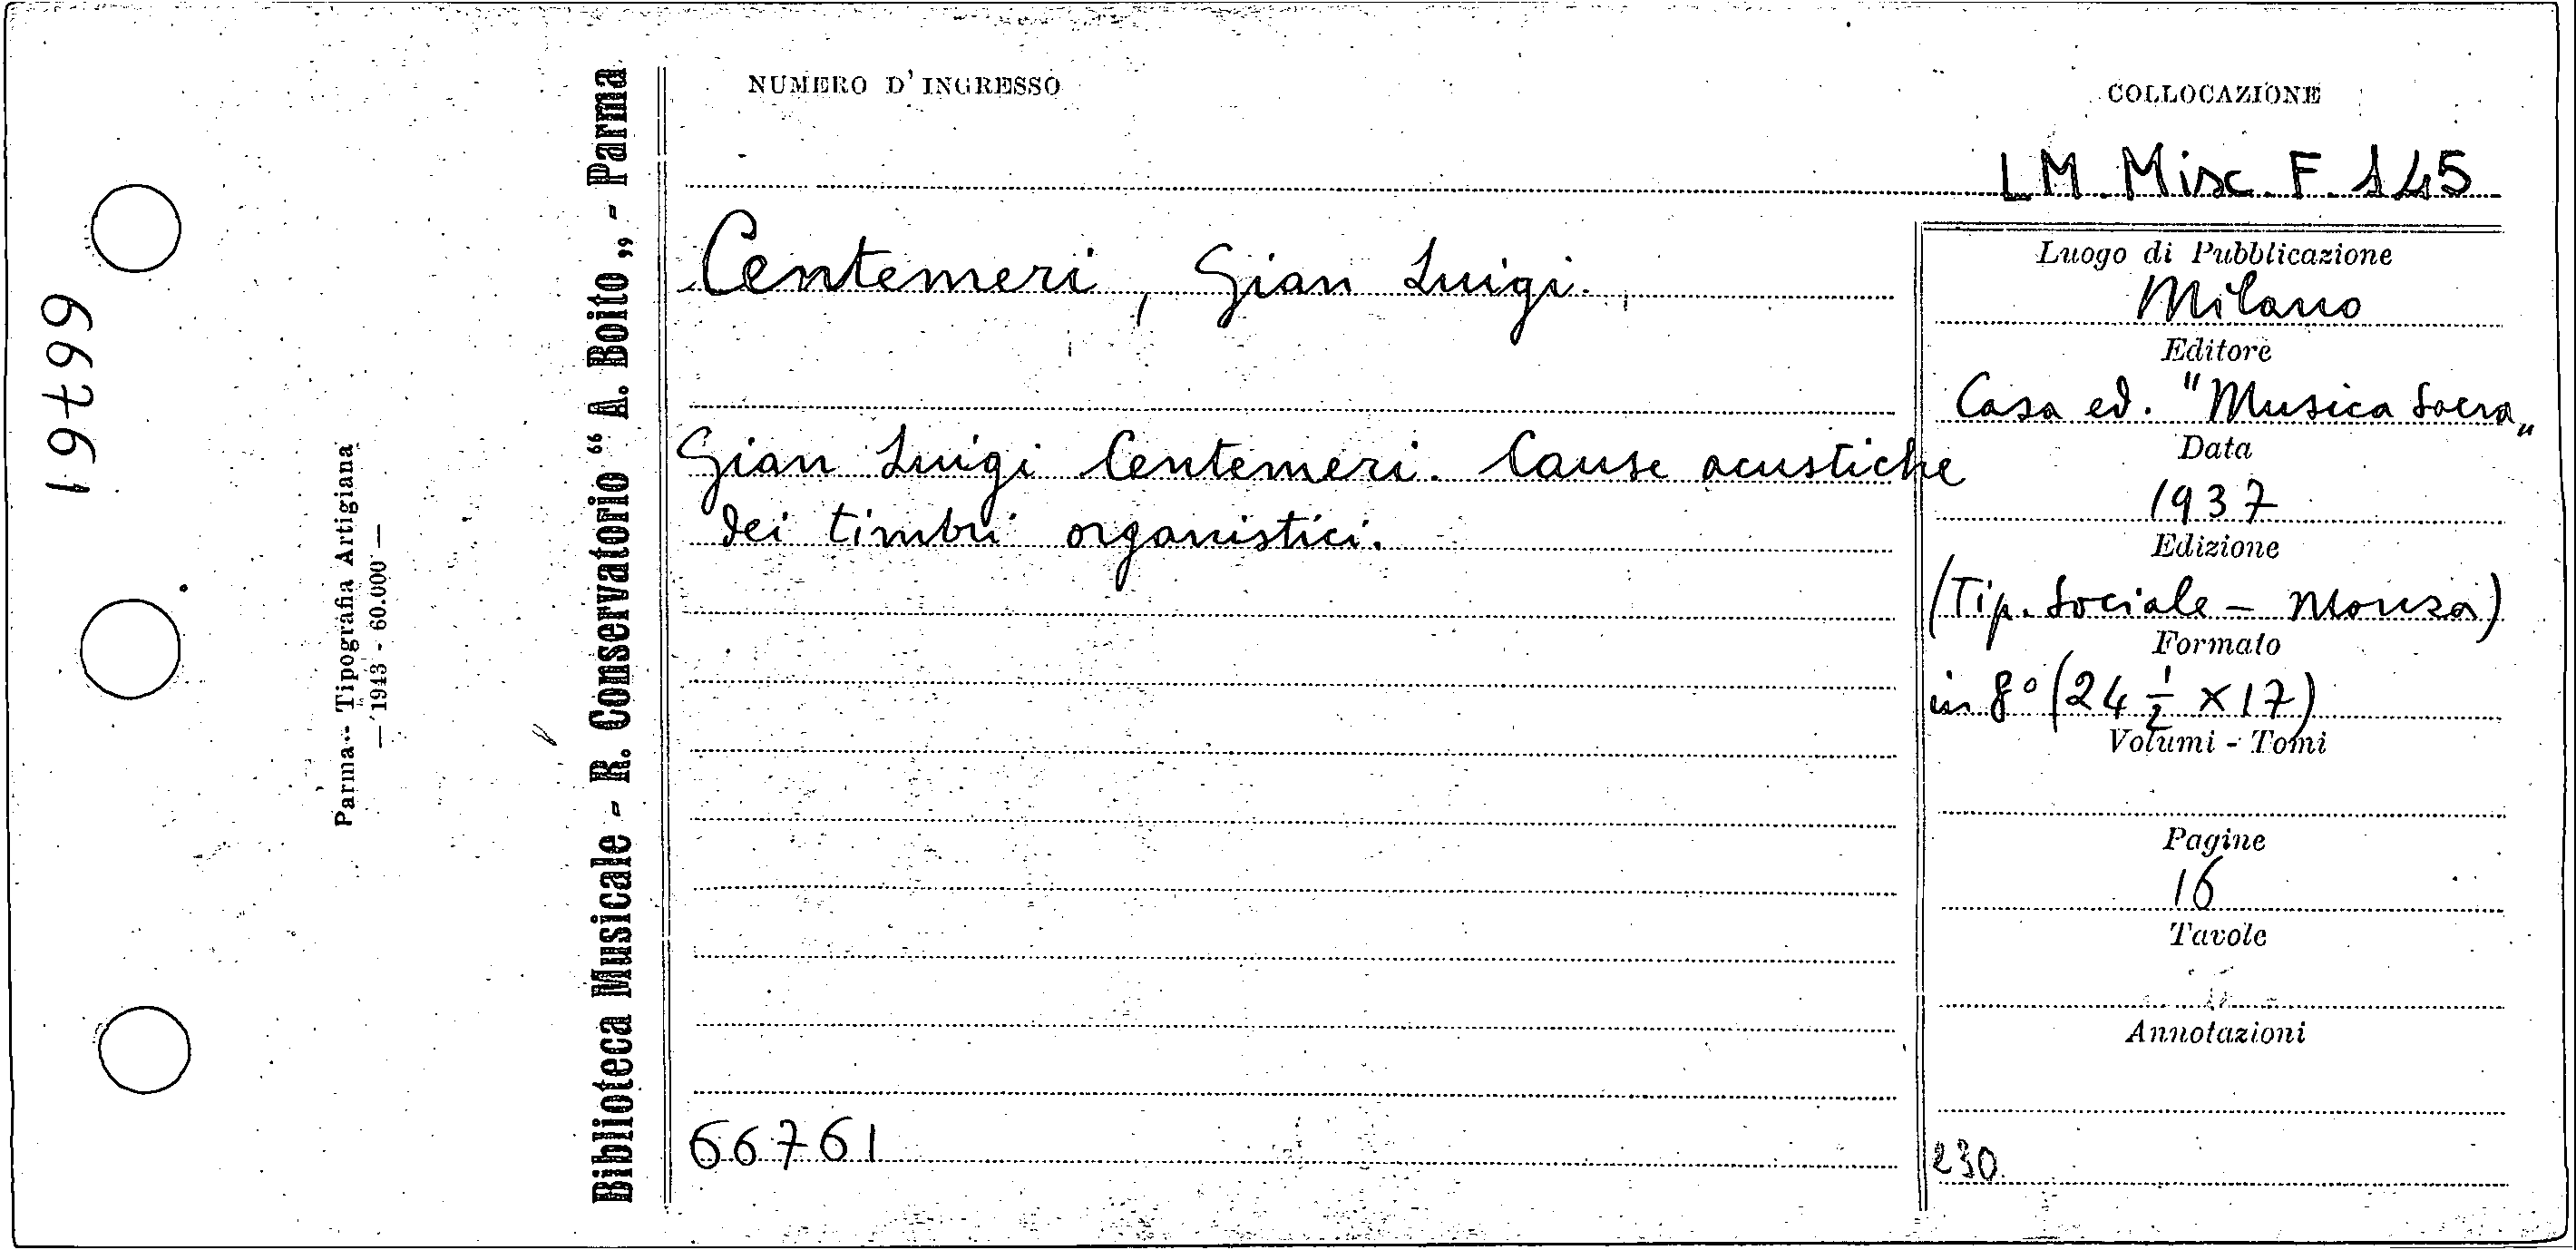 66761
Parma - Tipografia Artigiana
— 1943 - 60.000 —
Biblioteca Musicale - R. Conservatorio “ A. Boito „ - Parma
NUMERO D'INGRESSO
COLLOCAZIONE
LM. Misc. F. 145
Centemeri, Gian Luigi.
Gian Luigi Centemeri. Cause acustiche
dei timbri organistici.
66761
Luogo di Pubblicazione
Milano
Editore
Casa ed. "Musica Sacra„
Data
1937
Edizione
(Tip. Sociale - Monza)
Formato
in 8° (24 1/2 × 17)
Volumi - Tomi
Pagine
16
Tavole
Annotazioni
230